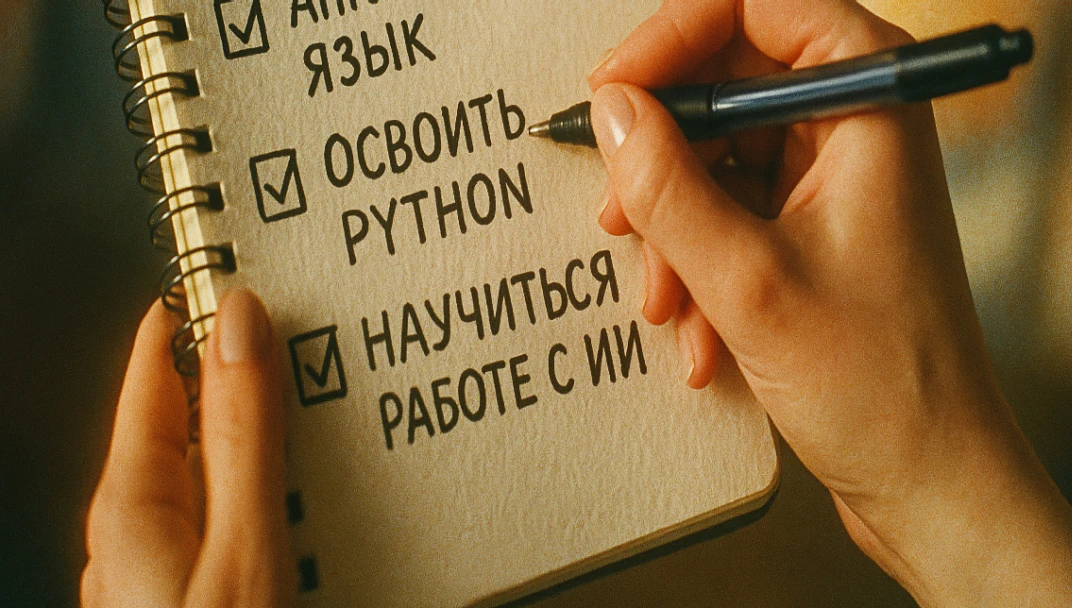 ЯЗЫК
ОСВОИТЬ
PYTHON
НАУЧИТЬСЯ
РАБОТЕ С ИИ